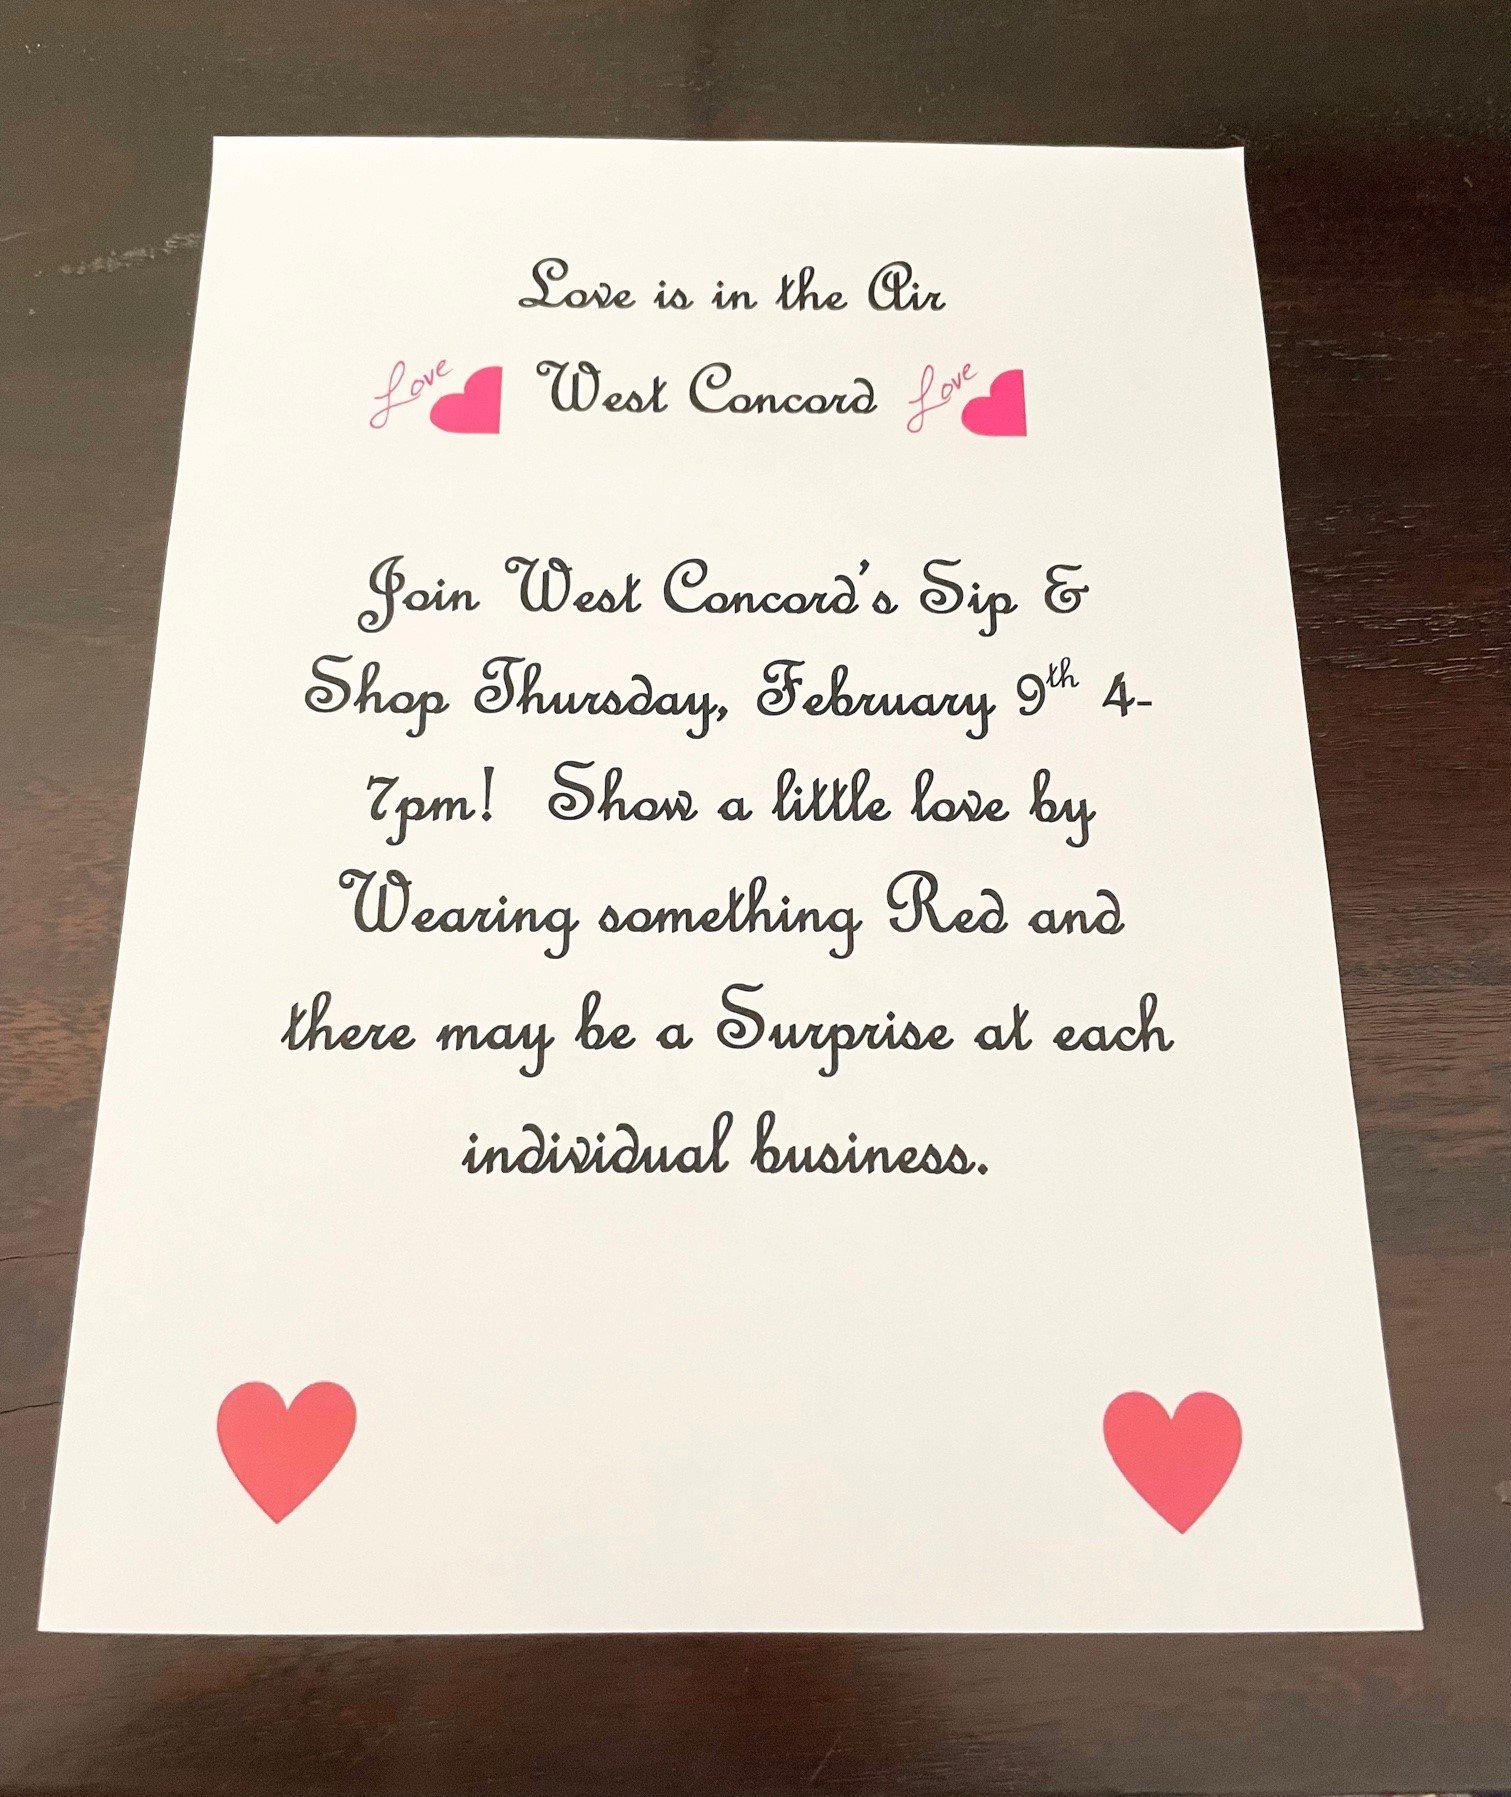 Love is in the Air
Love West Concord Love
Join West Concord's Sip &
Shop Thursday, February 9th 4-
7pm! Show a little love by
Wearing something Red and
there may be a Surprise at each
individual business.